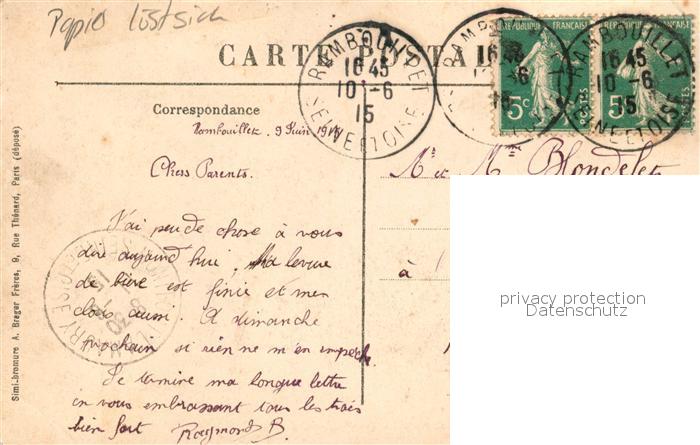 Papio löst sich
CARTE POSTALE
RAMBOUILLET
16 45
10 - 6
15
SEINE ET OISE
REPUBLIQUE FRANÇAISE
5c
POSTES
RAMBOUILLET
16 45
10 - 6
15
SEINE ET OISE
Correspondance
Rambouillet, 9 Juin 19
Chers Parents.
J'ai peu de chose à vous
dire aujourd'hui. Ma levure
de bière est finie et mes
aussi. A dimanche
prochain si rien ne m'en empêche.
Je termine ma longue lettre
en vous embrassant tous les trois
bien fort Raymond B.
Mr et Mme Blondelet
à
Simi-bromure A. Breger Frères, 9, Rue Thénard, Paris (déposé)
privacy protection
Datenschutz